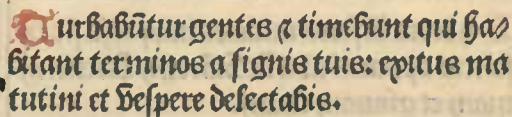 Turbabūtur gentes ⁊ timebunt qui ha⸗
bitant terminos a signis tuis: exitus ma
tutini et vespere delectabis.